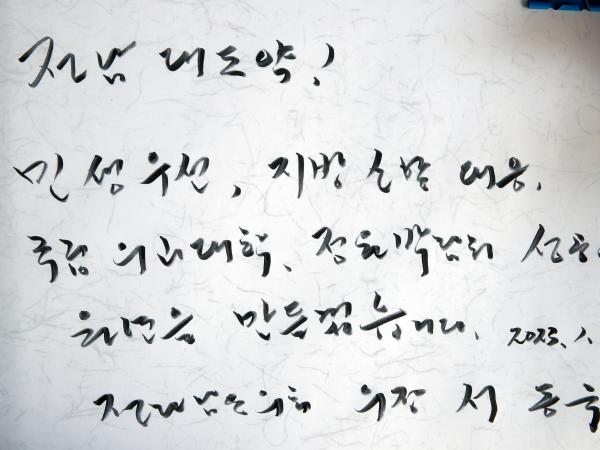 전남 대도약!
민생우선, 지방소멸 대응,
국립 의과대학, 정원박람회 성공
원년을 만들겠습니다. 2023. 1.
전라남도의회 의장 서 동욱